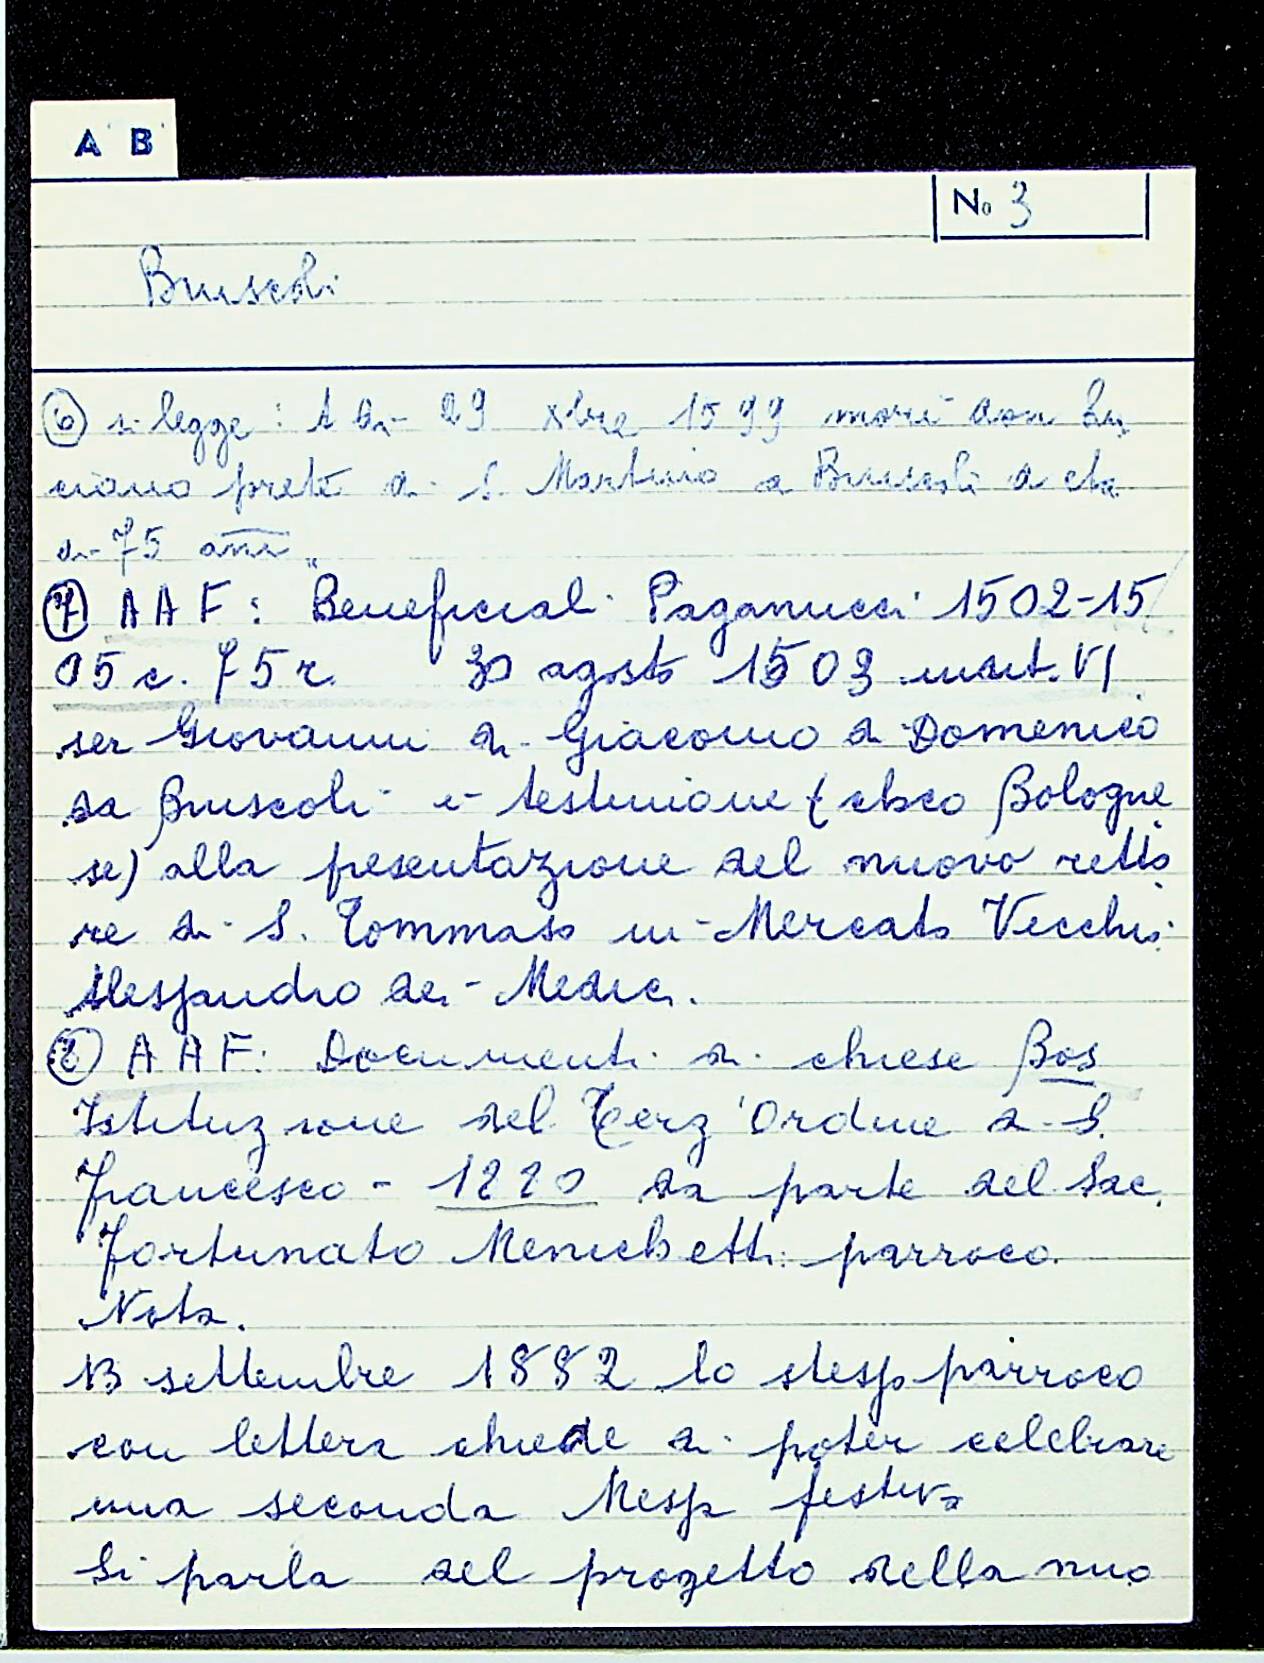 A B
No 3
Bruscoli
⑥ si legge: A di 29 xbre 1599 morì don Lu
ciano prete di S. Martino a Bruscoli di età
di 75 anni„
⑦ AAF: Beneficiali Paganucci 1502-15
05 c. 75 r. 30 agosto 1503 indict. VI
ser Giovanni di Giacomo di Domenico
da Bruscoli è testimone (clico Bologne
se) alla presentazione del nuovo retto
re di S. Tommaso in Mercato Vecchio:
Alessandro dei Medici.
⑧ AAF: Documenti di chiese Bos
Istituzione del Terz'Ordine di S.
Francesco - 1220 da parte del Sac.
Fortunato Menichetti parroco.
Nota.
13 settembre 1882 lo stesso parroco
con lettera chiede di poter celebrare
una seconda Messa festiva
Si parla del progetto della nuo